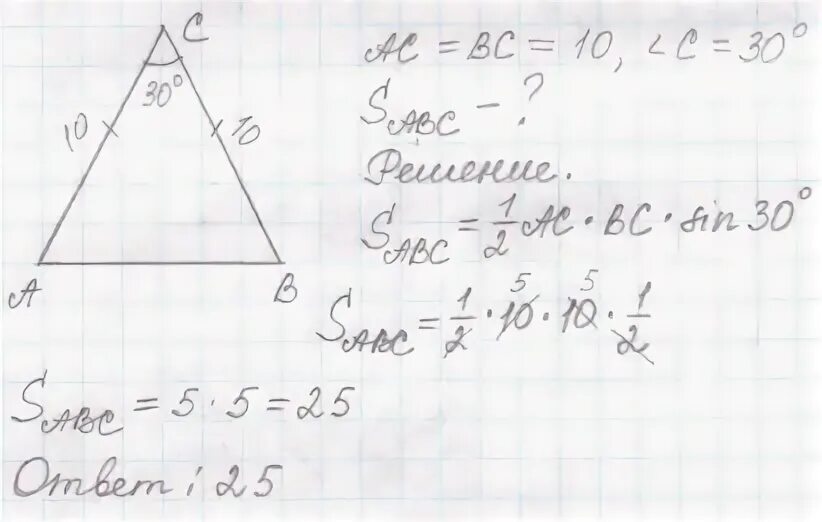 C
30°
10
10
A
B
AC = BC = 10, ∠C = 30°
S_ABC - ?
Решение.
S_ABC = 1/2 AC · BC · sin 30°
5 5
S_ABC = 1/2 · 10 · 10 · 1/2
S_ABC = 5 · 5 = 25
Ответ: 25